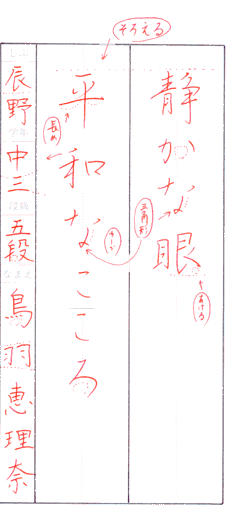 そろえる
静かな眼
あける
三角形
平和なこころ
長め
支部
辰野
学年
中三
段級
五段
なまえ
鳥羽恵理奈